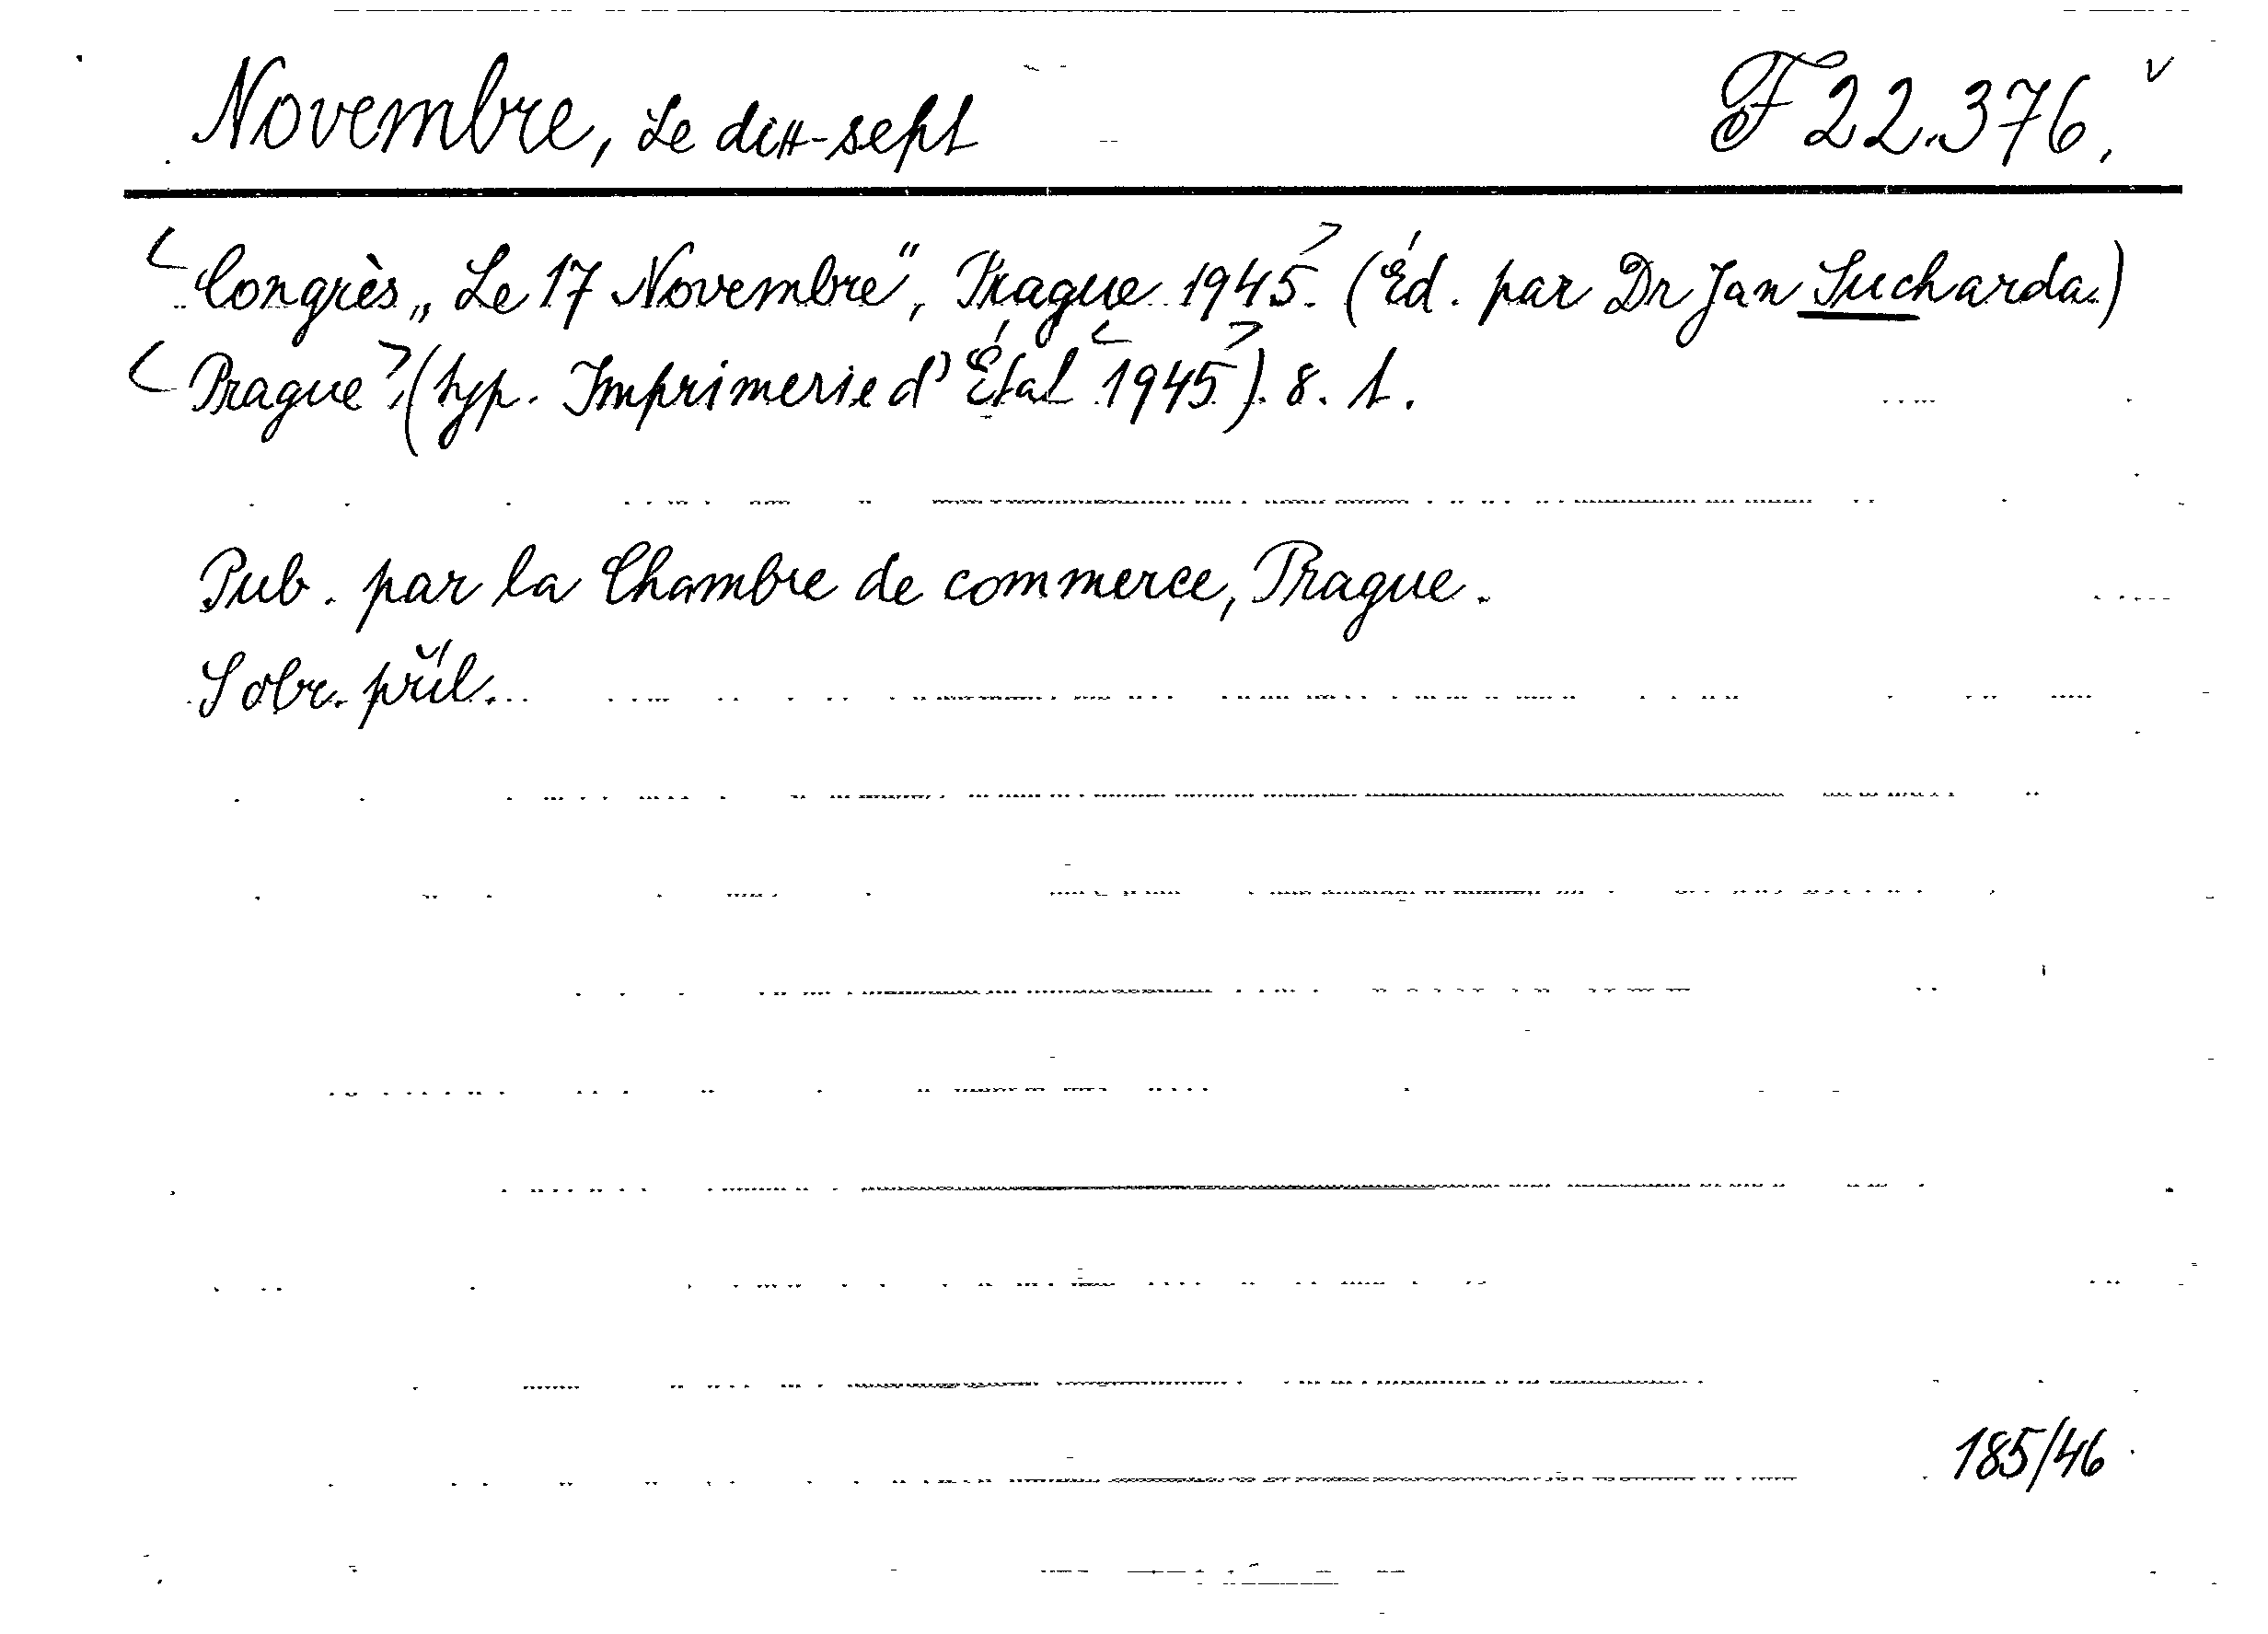 Novembre, Le dix-sept F 22.376.
<Congrès „Le 17 Novembre", Prague 1945.> (Éd. par Dr Jan Sucharda.)
<Prague>, (typ. Imprimerie d'État <1945>). 8. 1.
Pub. par la Chambre de commerce, Prague.
S obr. příl.
185/46